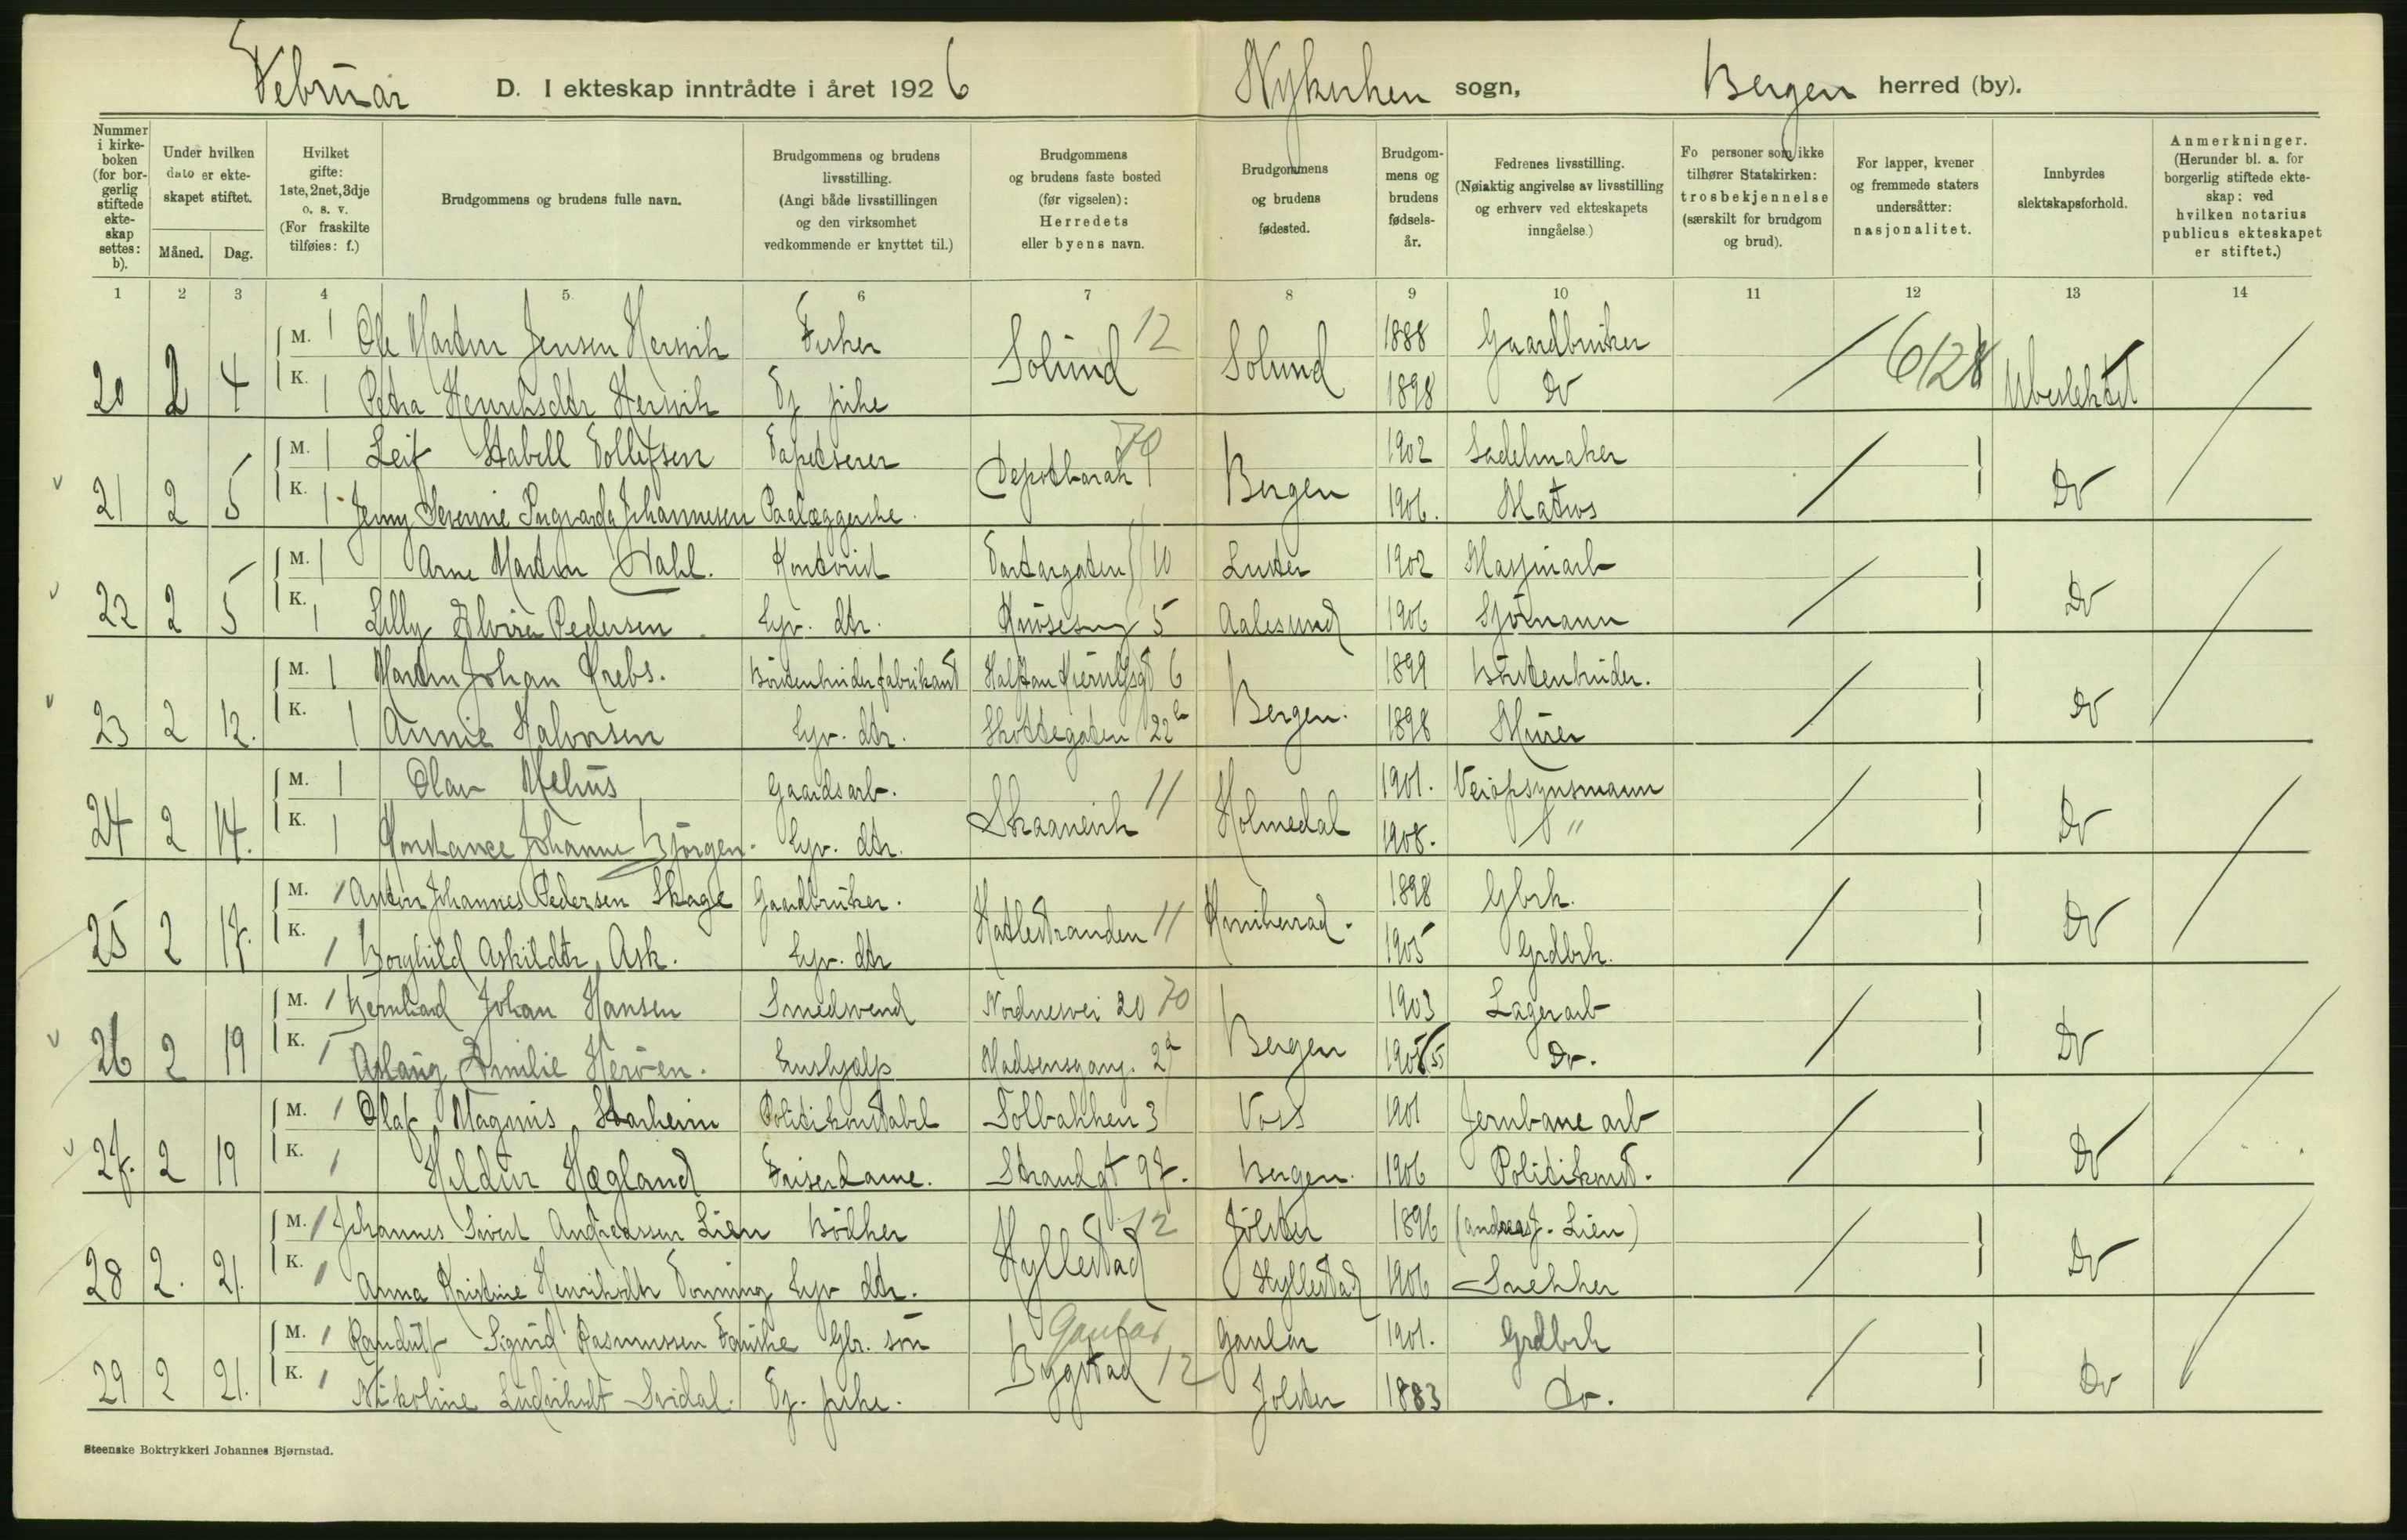 Februar D. I ekteskap inntrådte i året 1926 Nykirken sogn, Bergen herred (by).
Nummer i kirkeboken (for borgerlig stiftede ekteskap settes: b).
Under hvilken dato er ekteskapet stiftet.
Måned. Dag.
Hvilket gifte: 1ste, 2net, 3dje o. s. v. (For fraskilte tilføies: f.)
Brudgommens og brudens fulle navn.
Brudgommens og brudens livsstilling. (Angi både livsstillingen og den virksomhet vedkommende er knyttet til.)
Brudgommens og brudens faste bosted (før vigselen): Herredets eller byens navn.
Brudgommens og brudens fødested.
Brudgommens og brudens fødselsår.
Fedrenes livsstilling. (Nøiaktig angivelse av livsstilling og erhverv ved ekteskapets inngåelse.)
Fo personer som ikke tilhører Statskirken: trosbekjennelse (særskilt for brudgom og brud).
For lapper, kvener og fremmede staters undersåtter: nasjonalitet.
Innbyrdes slektskapsforhold.
Anmerkninger. (Herunder bl. a. for borgerlig stiftede ekteskap: ved hvilken notarius publicus ekteskapet er stiftet.)
1 2 3 4 5 6 7 8 9 10 11 12 13 14
M. 1 Ole Martin Jensen Hersvik Fisker Solund 12 Solund 1888 Gaardbruker 6/28
20 2 4 K. 1 Petra Henriksdtr Hersvik Tj. pike 1898 Do Ubeslektet
M. 1 Leif Stabell Tollefsen Tapetserer Depotbarak 70 Bergen 1902 Sadelmaker
21 2 5 K. 1 Jenny Severine Ingvarda Johannesen Paalæggerske. 1906. Matros Do
M. 1 Arne Martin Dahl. Kontorist Tartargaten 10 Luster 1902 Maskinarb
22 2 5 K. 1 Lilly Elvira Pedersen. Hjv. dtr. 5 Aalesund 1906 Sjömann Do
M. 1 Martin Johan Krebs. Börstenbinderfabrikant Halfdan Kjerulfsgt 6 Bergen. 1899 Börstenbinder.
23 2 12. K. 1 Annie Halvorsen Hjv. dtr. Skottegaten 22b 1898 Murer Do
M. 1 Olav Mehus Gaardsarb. Skaanevik 11 Holmedal 1901. Veiopsynsmann
24 2 14. K. 1 Konstance Johanne Björgen. Hjv. dtr. 1908. " Do
M. 1 Anton Johannes Pedersen Skage Gaardbruker. Hatlestranden 11 Kvinherad. 1898 Gbrk.
25 2 17. K. 1 Borghild Askildtr Ask. Hjv. dtr 1905 Grdbrk. Do
M. 1 Bernhard Johan Hansen Smedsvend Nordnesvei 20 70 Bergen 1903 Lagerarb
26 2 19 K. 1 Aslaug Emilie Heröen. Hushjælp Madsensgang. 2a 1905 Do. Do
M. 1 Olaf Magnus Starheim Politikonstabel Tolbakken 3 Voss 1901 Jernbane arb
27. 2 19 K. 1 Hildur Hægland Friserdame. Strandgt 97. Bergen. 1906 Politikonst. Do
M. 1 Johannes Sivert Andreassen Lien Bödker Hyllestad 12 Jölster 1896 (Andreas J. Lien)
28 2. 21. K. 1 Anna Kristine Henriksdtr Tonning Hjv dtr. Hyllestad 1906 Snekker Do
M. 1 Randulf Sigurd Rasmussen Fauske Gbr. sön Gaular Bygstad 12 Gaular 1901. Grdbrk
29 2 21. K. 1 Nikoline Ludviksdt Svidal. Tj. pike. Jölster 1883 Do. Do
Steenske Boktrykkeri Johannes Bjørnstad.